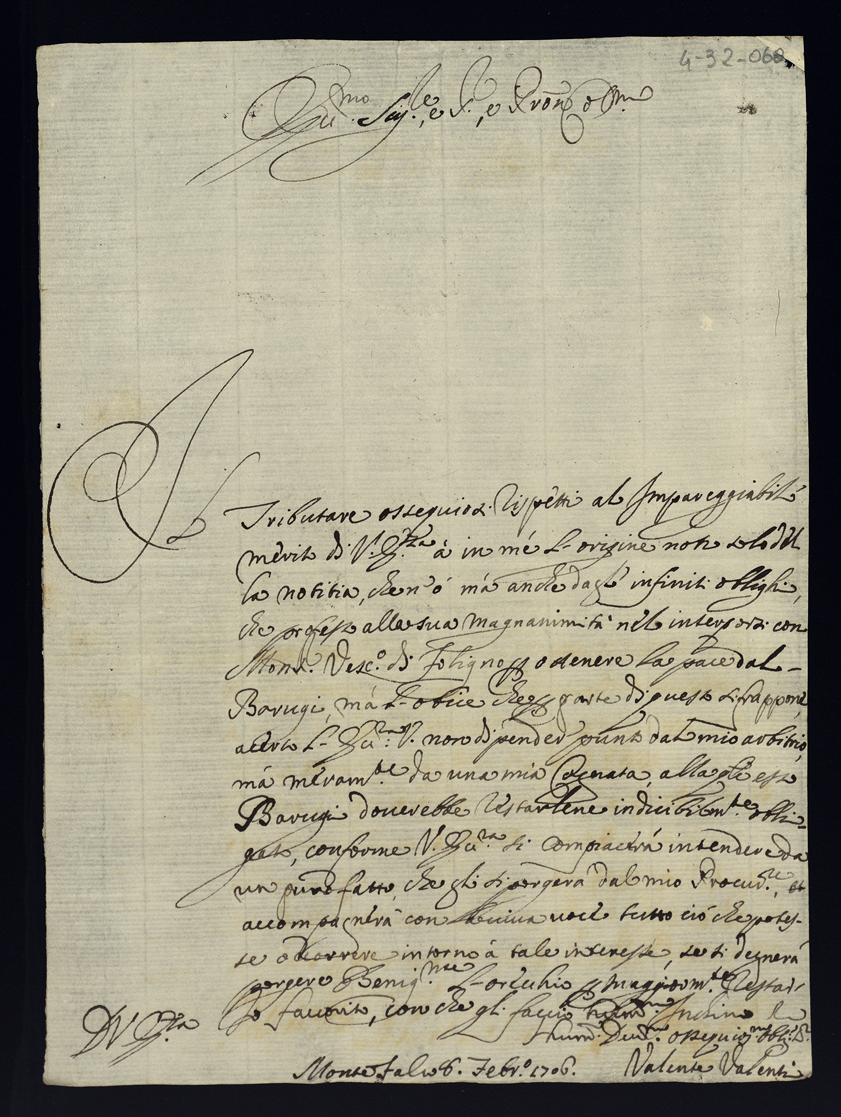 4-32-068
Ecc.mo Sig.re, e P., e Pron Col.mo
Il
Tributare ossequiosi rispetti al Impareggiabil
merito di V. Ecc.za à in mé l'origine non solo dal
la notitia, che n'ó má anche dagl' infiniti oblighi,
che professo alla sua magnanimità nel interporsi con
Mons.r Vesc.o di Foligno p ottenere la pace dal
Barugi, má l'obice che p parte di questo si frappone,
accerto l'Ecc.za V. non dipender punto dal mio arbitrio,
má meram.te da una mia Cognata, alla q.le esso
Barugi douerebbe restarlene indicibilm.te obli-
gato, conforme V. Ecc.za si compiacerà intendere da
un puro fatto, che gli si porgerà dal mio Procur.re, et
accompagnerà con la uiua uoce tutto ció che potes-
se occorrere intorno à tale interesse, se si degnerà
porgere Benig.mte l'orechio p maggiorm.te restar-
lo fauorito, con che gli faccio hum.mo Inchino
D V Ecc.za
Hum. Deu. ossequio. obli. S.
Monte Falco 6. Febr.o 1706. Valente Valenti